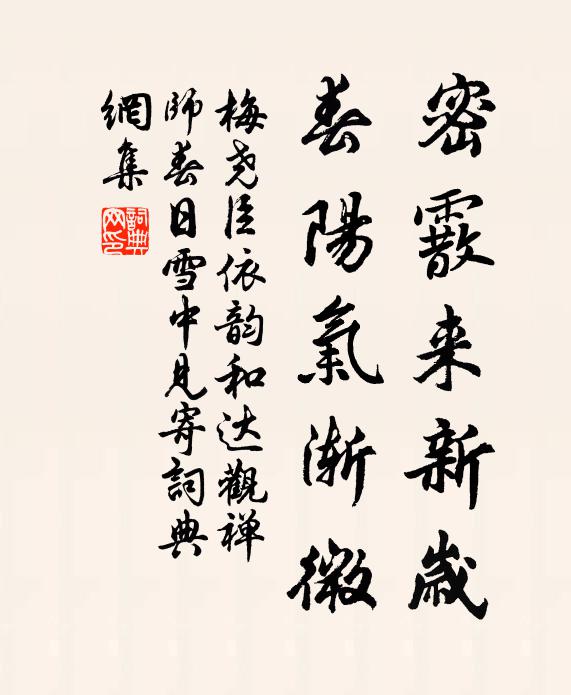 密霰来新歲
春陽氣漸微
梅尭臣依韵和达觀禅
師春日雪中見寄詞典
網集
詞典网印